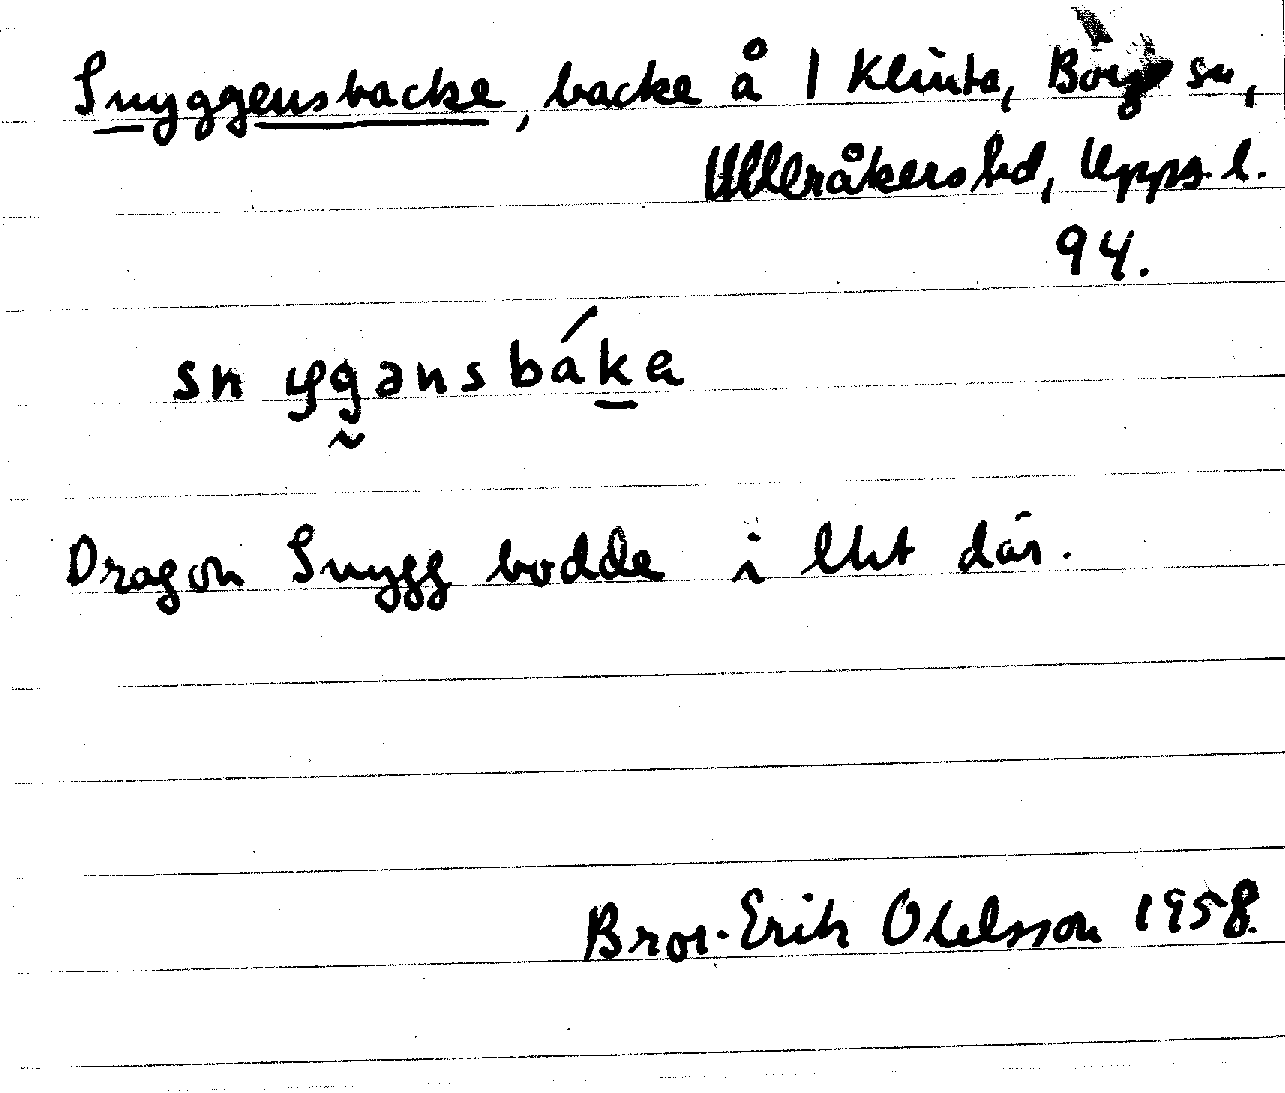 Snyggensbacke, backe å 1 Klinta, Börje sn,
Ulleråkers hd, Upps. l.
94.
snyg̰ənsbáka
Dragon Snygg bodde i lht där.
Bror-Erik Ohlsson 1958.